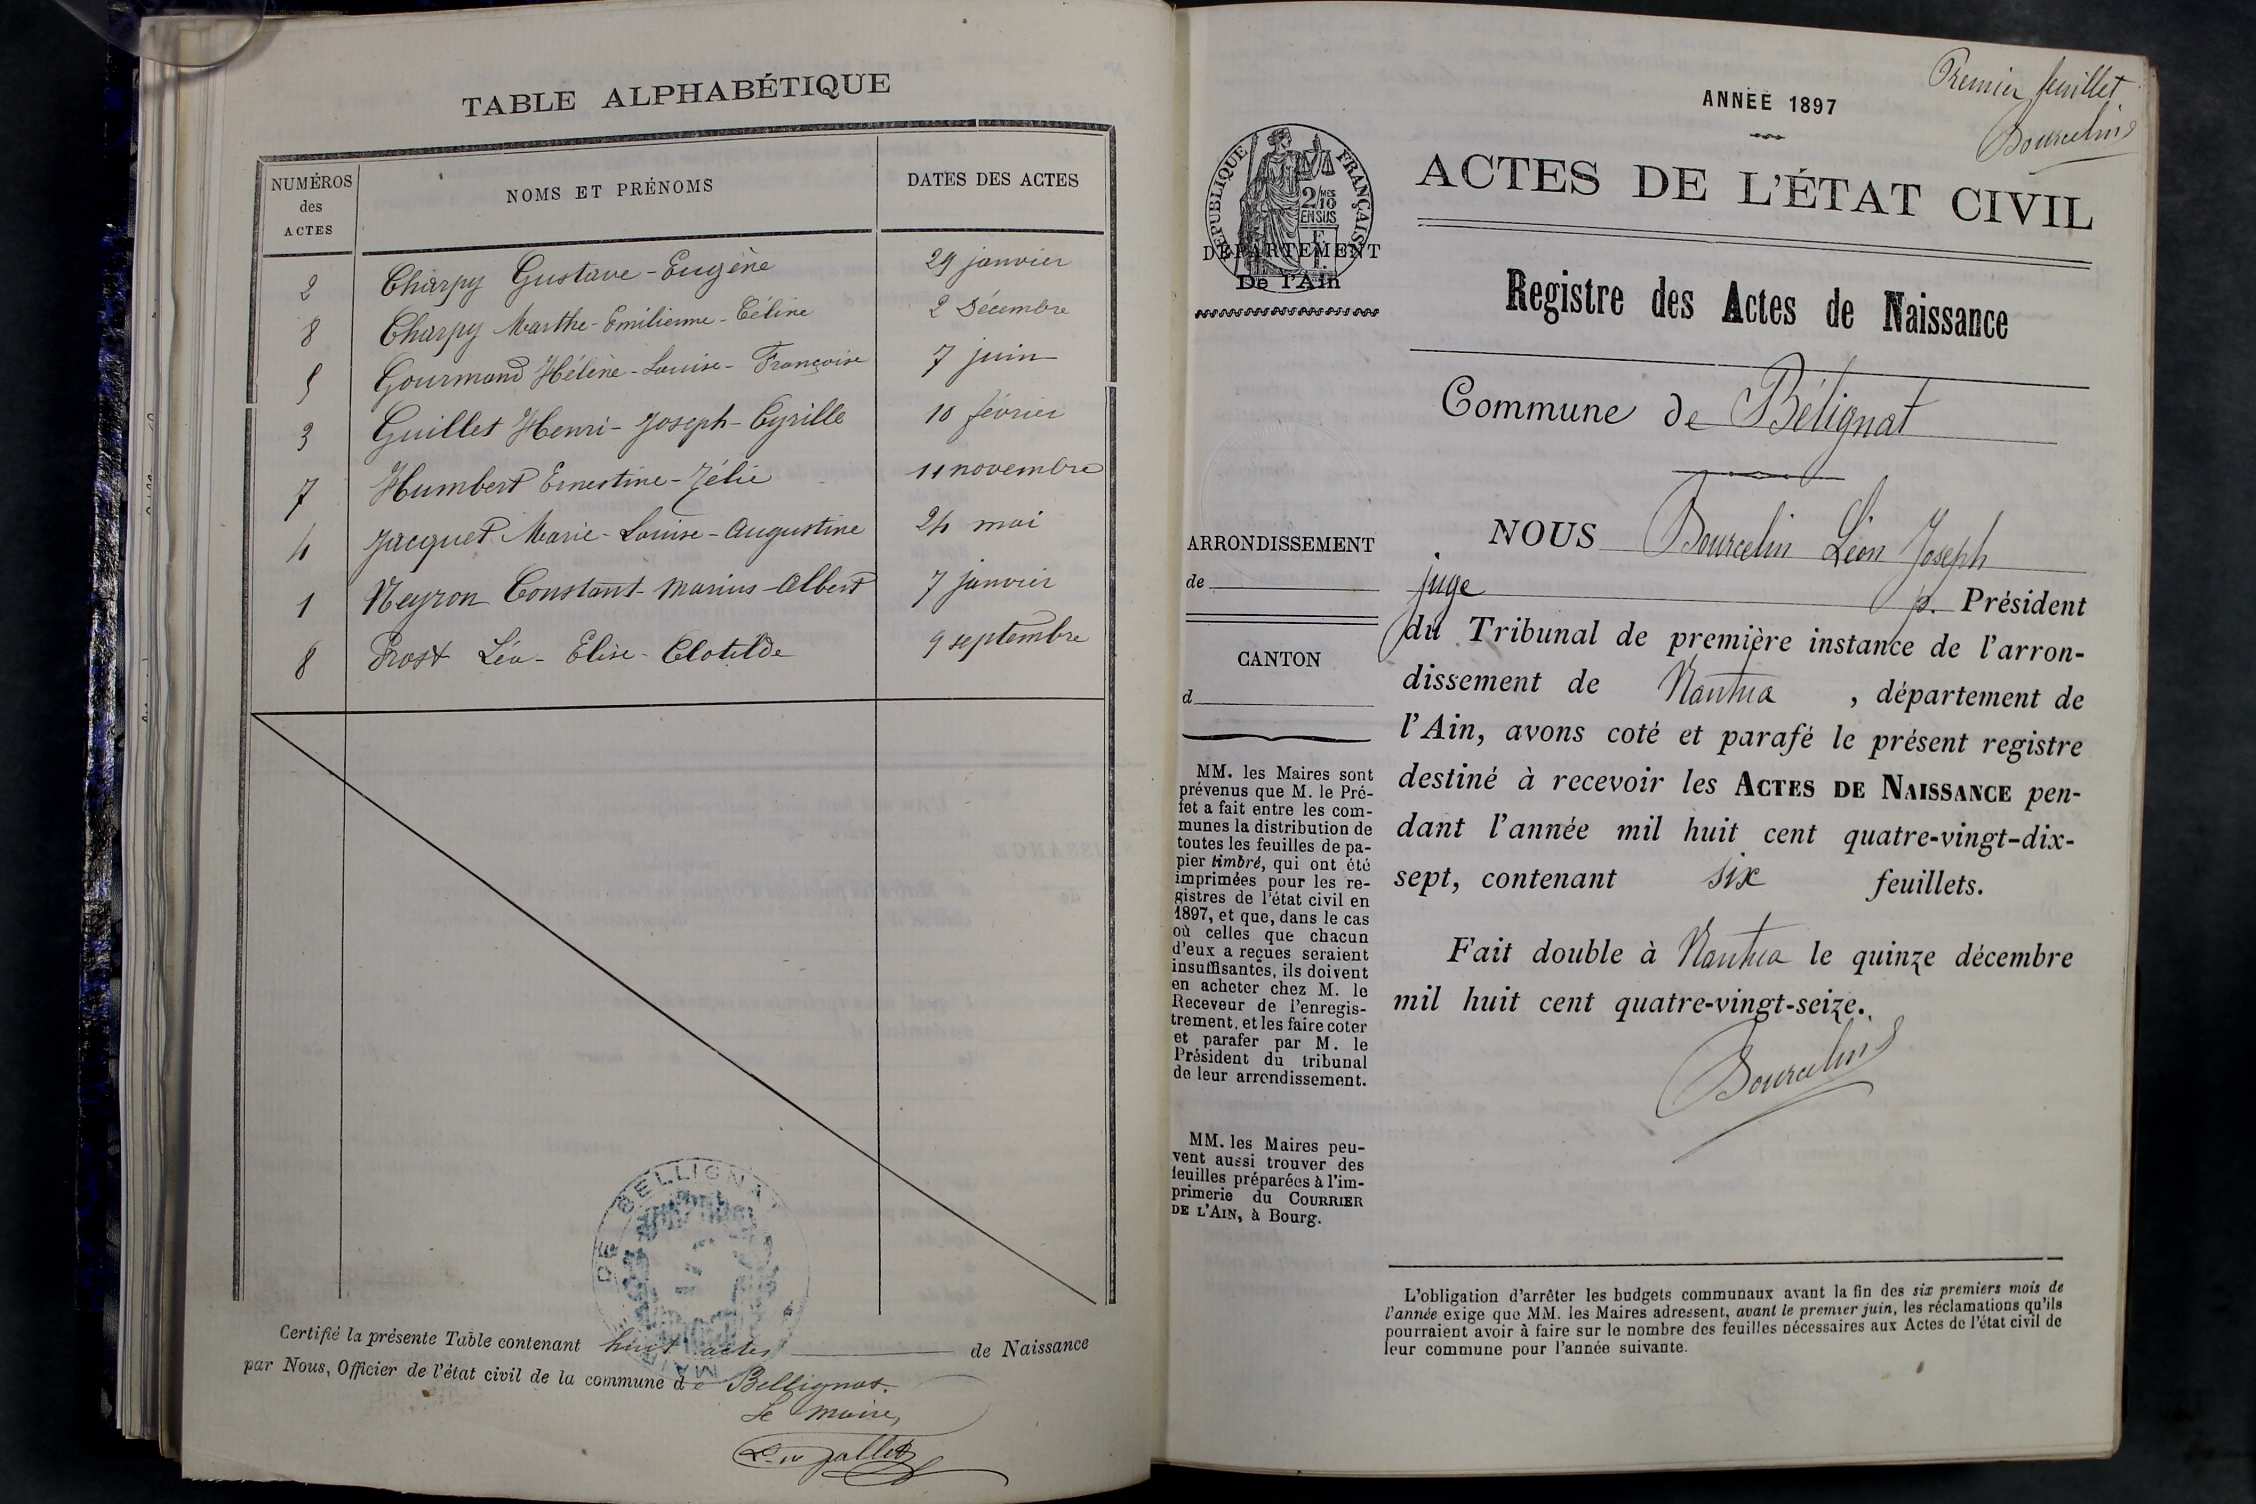 TABLE ALPHABÉTIQUE
NUMÉROS des ACTES | NOMS ET PRÉNOMS | DATES DES ACTES
2 Charpy Gustave-Eugène 29 janvier
8 Charpy Marthe-Emilienne-Céline 2 Décembre
5 Gourmand Hélène-Louise-Françoise 7 juin
3 Guillet Henri-Joseph-Cyrille 10 février
7 Humbert Ernestine-Zélie 11 novembre
4 Jacquet Marie-Louise-Augustine 24 mai
1 Neyron Constant-Marius-Albert 7 janvier
8 Prost Léa-Elise-Clotilde 9 septembre
DE BELLIGNAT
MAIRIE
Certifié la présente Table contenant huit actes de Naissance
par Nous, Officier de l'état civil de la commune de Bellignat.
Le Maire,
Premier feuillet
Bourcelin
ANNÉE 1897
ACTES DE L'ÉTAT CIVIL
RÉPUBLIQUE FRANÇAISE
2/10 MES
EN SUS
DÉPARTEMENT
De l'Ain
Registre des Actes de Naissance
Commune de Bélignat
ARRONDISSEMENT
de
CANTON
d
MM. les Maires sont
prévenus que M. le Pré-
fet a fait entre les com-
munes la distribution de
toutes les feuilles de pa-
pier timbré, qui ont été
imprimées pour les re-
gistres de l'état civil en
1897, et que, dans le cas
où celles que chacun
d'eux a reçues seraient
insuffisantes, ils doivent
en acheter chez M. le
Receveur de l'enregis-
trement, et les faire coter
et parafer par M. le
Président du tribunal
de leur arrondissement.
MM. les Maires peu-
vent aussi trouver des
feuilles préparées à l'im-
primerie du COURRIER
DE L'AIN, à Bourg.
NOUS Bourcelin Léon Joseph
juge p. Président
du Tribunal de première instance de l'arron-
dissement de Nantua, département de
l'Ain, avons coté et parafé le présent registre
destiné à recevoir les ACTES DE NAISSANCE pen-
dant l'année mil huit cent quatre-vingt-dix-
sept, contenant six feuillets.
Fait double à Nantua le quinze décembre
mil huit cent quatre-vingt-seize.
Bourcelin
L'obligation d'arrêter les budgets communaux avant la fin des six premiers mois de
l'année exige que MM. les Maires adressent, avant le premier juin, les réclamations qu'ils
pourraient avoir à faire sur le nombre des feuilles nécessaires aux Actes de l'état civil de
leur commune pour l'année suivante.